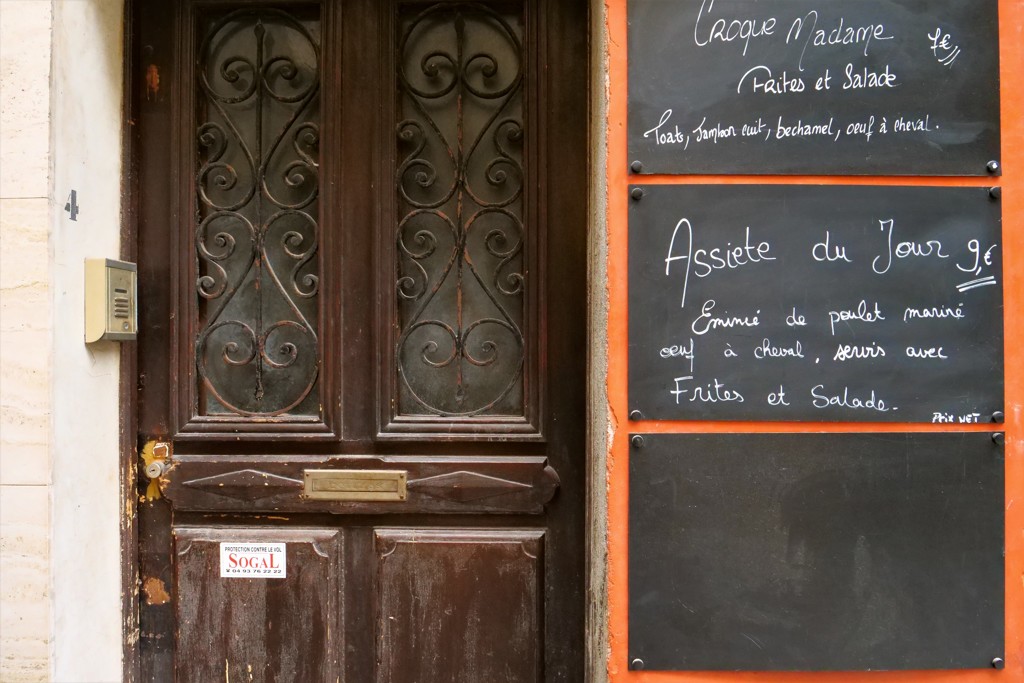 4
PROTECTION CONTRE LE VOL
SOGAL
04 93 76 22 22
Croque Madame 7€
Frites et Salade
Toats, Jambon cuit, bechamel, oeuf à cheval.
Assiete du Jour 9,€
Emincé de poulet mariné
oeuf à cheval, servis avec
Frites et Salade.
Prix NET